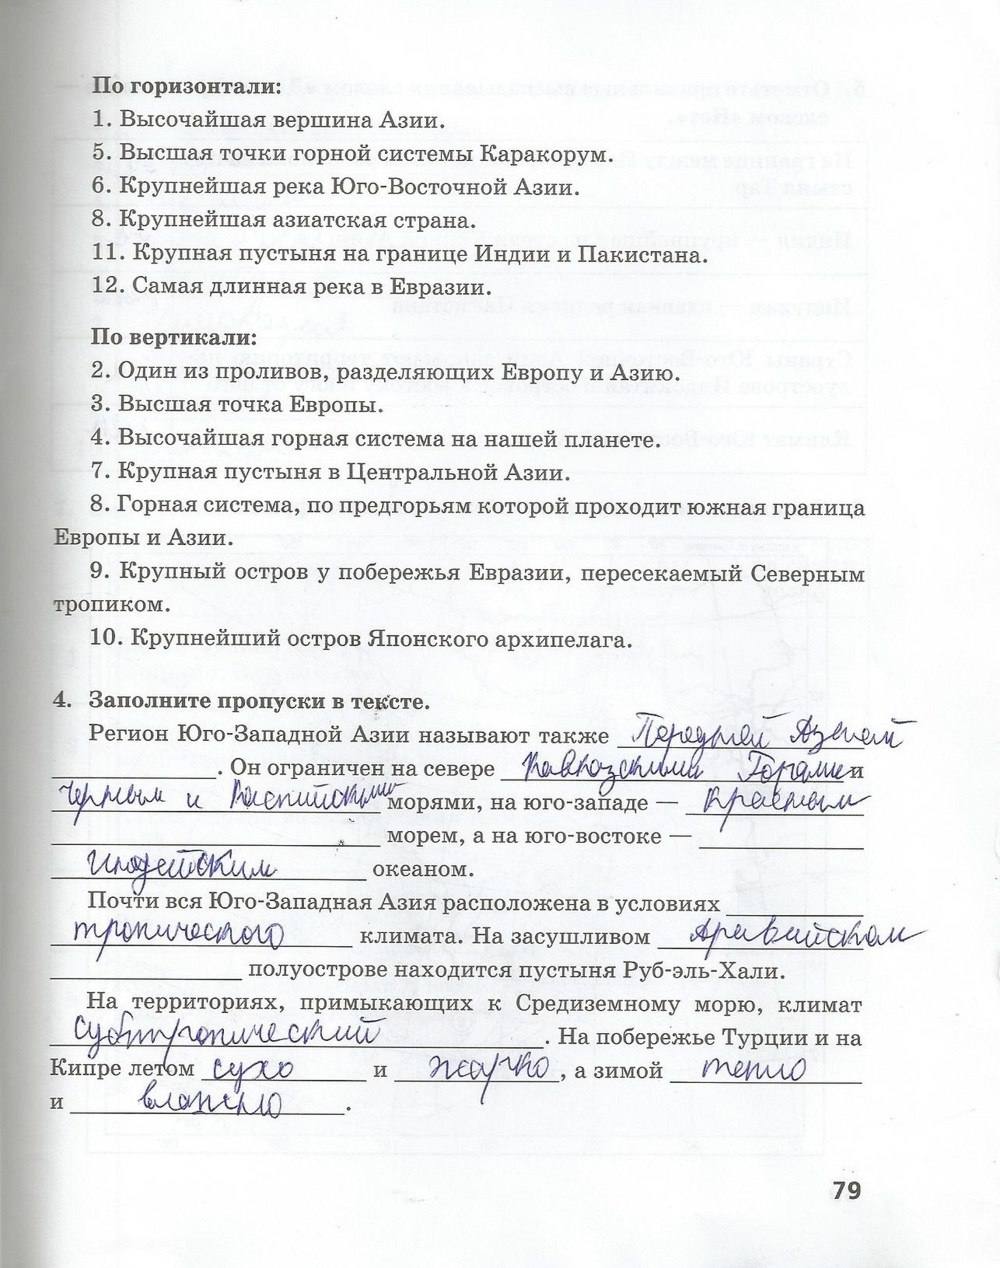 По горизонтали:
1. Высочайшая вершина Азии.
5. Высшая точки горной системы Каракорум.
6. Крупнейшая река Юго-Восточной Азии.
8. Крупнейшая азиатская страна.
11. Крупная пустыня на границе Индии и Пакистана.
12. Самая длинная река в Евразии.
По вертикали:
2. Один из проливов, разделяющих Европу и Азию.
3. Высшая точка Европы.
4. Высочайшая горная система на нашей планете.
7. Крупная пустыня в Центральной Азии.
8. Горная система, по предгорьям которой проходит южная граница
Европы и Азии.
9. Крупный остров у побережья Евразии, пересекаемый Северным
тропиком.
10. Крупнейший остров Японского архипелага.
4. Заполните пропуски в тексте.
Регион Юго-Западной Азии называют также Передней Азией
. Он ограничен на севере Кавказскими Горами и
Черным и Каспийским морями, на юго-западе — красным
морем, а на юго-востоке —
индейским океаном.
Почти вся Юго-Западная Азия расположена в условиях
тропического климата. На засушливом Аравийском
полуострове находится пустыня Руб-эль-Хали.
На территориях, примыкающих к Средиземному морю, климат
субтропический. На побережье Турции и на
Кипре летом сухо и жарко, а зимой тепло
и влажно.
79